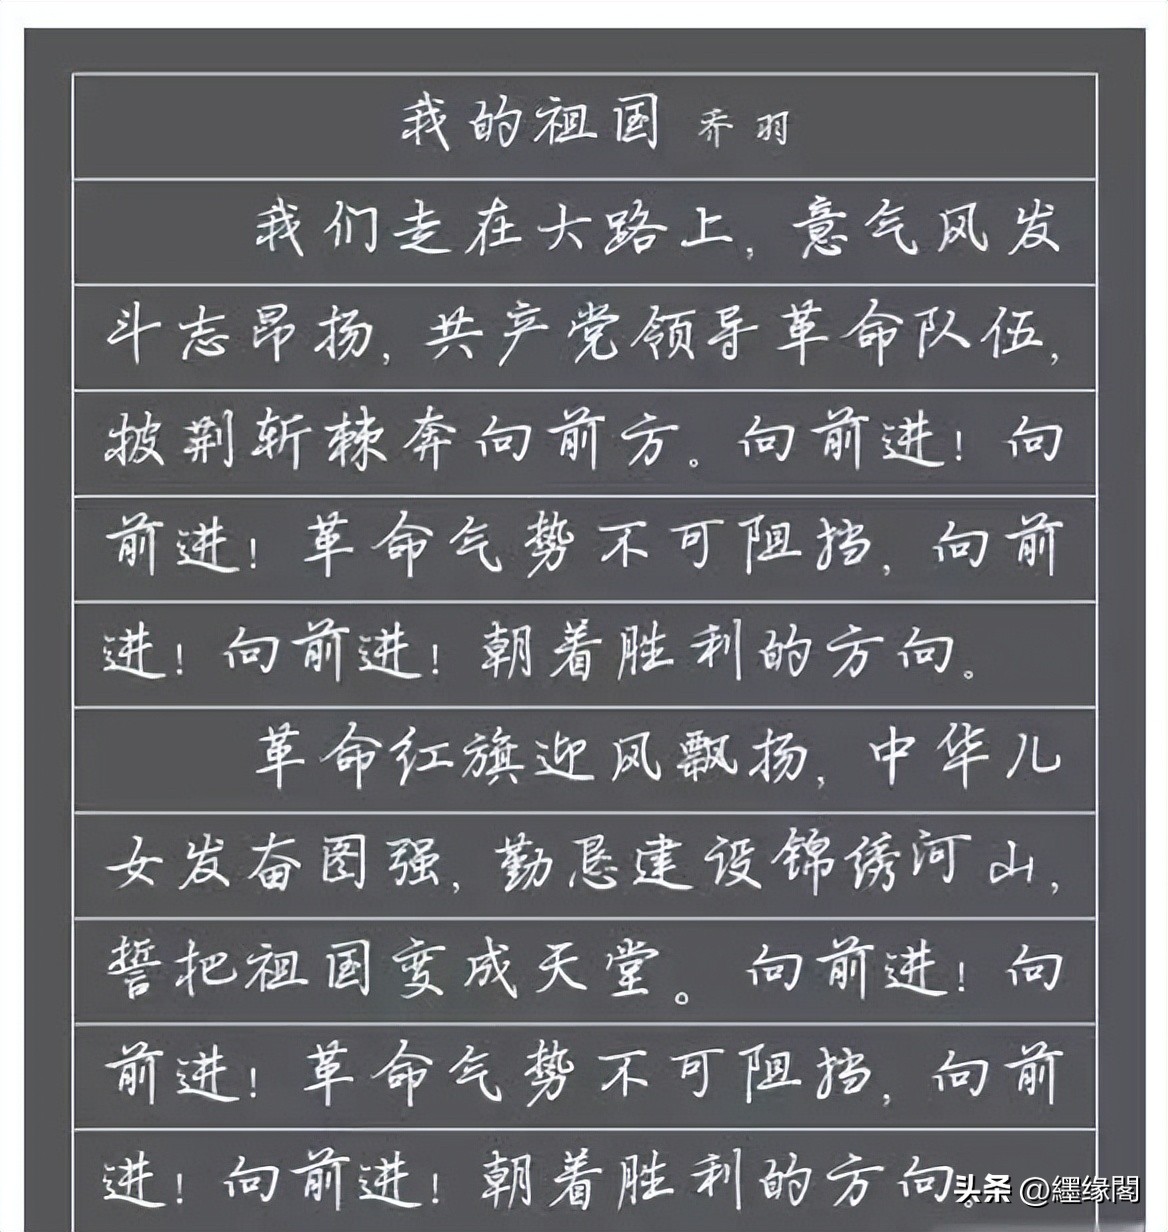 我的祖国 乔羽
我们走在大路上，意气风发
斗志昂扬，共产党领导革命队伍，
披荆斩棘奔向前方。向前进！向
前进！革命气势不可阻挡，向前
进！向前进！朝着胜利的方向。
革命红旗迎风飘扬，中华儿
女发奋图强，勤恳建设锦绣河山，
誓把祖国变成天堂。向前进！向
前进！革命气势不可阻挡，向前
进！向前进！朝着胜利的方向。
头条 @繟缘閣